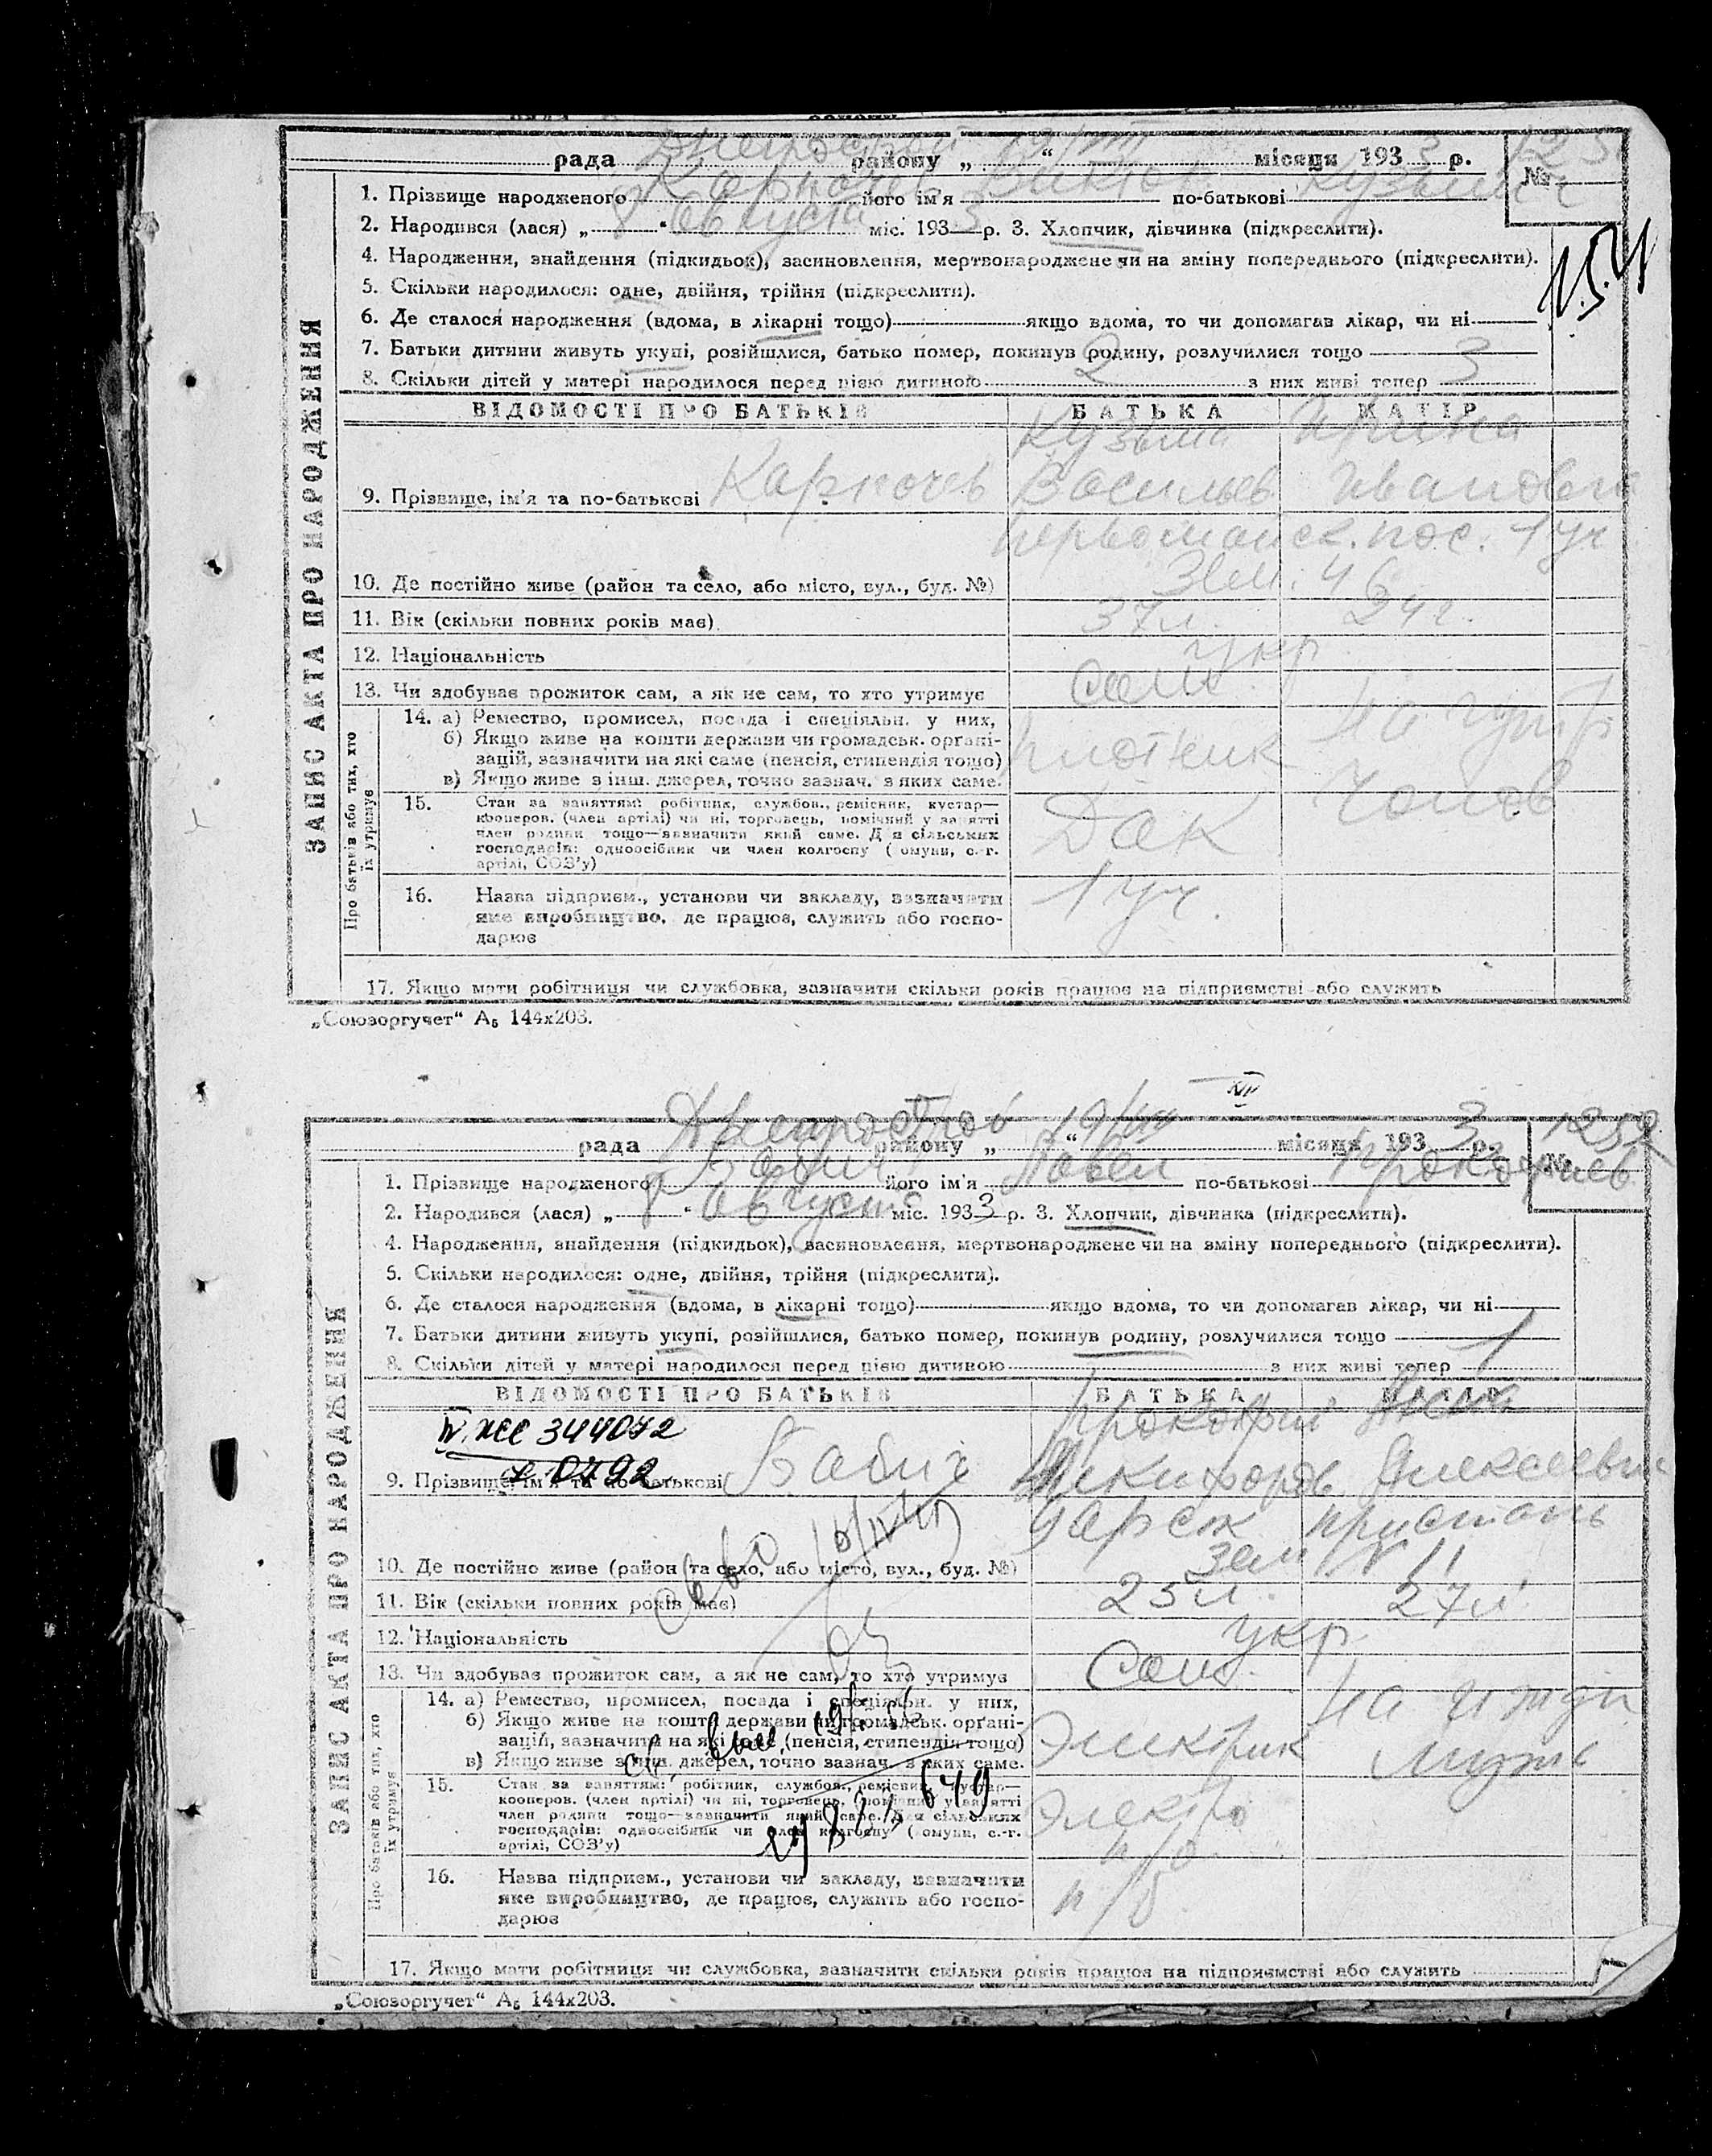 рада Днепрострой району „ 19/VIII “ місяця 193 3 р. №
1. Прізвище народженого Карпочев його ім'я Виктор по-батькові Кузьмич
2. Народився (лася) „ 8 “ августа міс. 193 3 р. 3. Хлопчик, дівчинка (підкреслити).
4. Народження, знайдення (підкидьок), засиновлення, мертвонароджене чи на зміну попереднього (підкреслити).
5. Скільки народилося: одне, двійня, трійня (підкреслити).
6. Де сталося народження (вдома, в лікарні тощо) якщо вдома, то чи допомагав лікар, чи ні
7. Батьки дитини живуть укупі, розійшлися, батько помер, покинув родину, розлучилися тощо
8. Скільки дітей у матері народилося перед цією дитиною 2 з них живі тепер 3
ЗАПИС АКТА ПРО НАРОДЖЕННЯ
ВІДОМОСТІ ПРО БАТЬКІВ БАТЬКА МАТІР
Кузьма Ирина
9. Прізвище, ім'я та по-батькові Карпочев Васильев Ивановна
первомайск. пос. 1 уч
10. Де постійно живе (район та село, або місто, вул., буд. №) Зем. 46
11. Вік (скільки повних років має) 37 л. 24 г.
12. Національність укр
13. Чи здобуває прожиток сам, а як не сам, то хто утримує Сам
Про батьків або тих, хто їх утримує
14. а) Ремество, промисел, посада і спеціяльн. у них,
б) Якщо живе на кошти держави чи громадськ. органі-
зацій, зазначити на які саме (пенсія, стипендія тощо)
в) Якщо живе з інш. джерел, точно зазнач. з яких саме.
плотник на
15. Стан за заняттям: робітник, службов., ремісник, кустар—
кооперов. (член артілі) чи ні, торговець, помічний у занятті
член родини тощо—зазначити який саме. Для сільських
господарів: одноосібник чи член колгоспу (комуни, с.-г.
артілі, СОЗ'у)
ДАК
16. Назва підприєм., установи чи закладу, зазначити
яке виробництво, де працює, служить або госпо-
дарює
1 уч.
17. Якщо мати робітниця чи службовка, зазначити скільки років працює на підприємстві або служить
„Союзоргучет“ А₅ 144х203.
рада Днепрострой району „ 19/VIII “ місяця 193 3 р. № 1252
1. Прізвище народженого Бабич його ім'я Павел по-батькові Прокофиев
2. Народився (лася) „ 8 “ августа міс. 193 3 р. 3. Хлопчик, дівчинка (підкреслити).
4. Народження, знайдення (підкидьок), засиновлення, мертвонароджене чи на зміну попереднього (підкреслити).
5. Скільки народилося: одне, двійня, трійня (підкреслити).
6. Де сталося народження (вдома, в лікарні тощо) якщо вдома, то чи допомагав лікар, чи ні
7. Батьки дитини живуть укупі, розійшлися, батько помер, покинув родину, розлучилися тощо
8. Скільки дітей у матері народилося перед цією дитиною з них живі тепер 1
ЗАПИС АКТА ПРО НАРОДЖЕННЯ
ВІДОМОСТІ ПРО БАТЬКІВ БАТЬКА
Прокофий
344072
9. Прізвище, ім'я та по-батькові Бабич Никифоров Алексеевна
пристань
10. Де постійно живе (район та село, або місто, вул., буд. №) зем № 11
11. Вік (скільки повних років має) 25 л. 27 л.
12. Національність укр
13. Чи здобуває прожиток сам, а як не сам, то хто утримує Сам
Про батьків або тих, хто їх утримує
14. а) Ремество, промисел, посада і спеціяльн. у них,
б) Якщо живе на кошти держави чи громадськ. органі-
зацій, зазначити на які саме (пенсія, стипендія тощо)
в) Якщо живе з інш. джерел, точно зазнач. з яких саме.
Электрик на ижди мужа
15. Стан за заняттям: робітник, службов., ремісник, кустар—
кооперов. (член артілі) чи ні, торговець, помічний у занятті
член родини тощо—зазначити який саме. Для сільських
господарів: одноосібник чи член колгоспу (комуни, с.-г.
артілі, СОЗ'у)
Электро
16. Назва підприєм., установи чи закладу, зазначити
яке виробництво, де працює, служить або госпо-
дарює
п/б
17. Якщо мати робітниця чи службовка, зазначити скільки років працює на підприємстві або служить
„Союзоргучет“ А₅ 144х203.